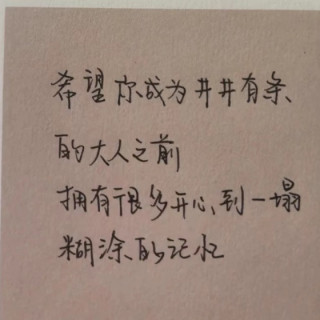 希望你成为井井有条
的大人之前
拥有很多开心到一塌
糊涂的记忆